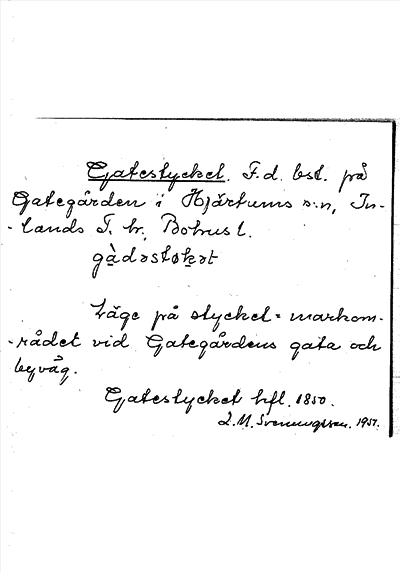 Gatestycket. F.d. bst. på
Gategården i Hjärtums s:n, In-
-lands T. hr, Bohus l.
gàdəstøk̬ət
Läge på stycket = markom-
-rådet vid Gategårdens gata och
byväg.
Gatestycket hfl. 1850.
L.M. Svenungsson. 1951.